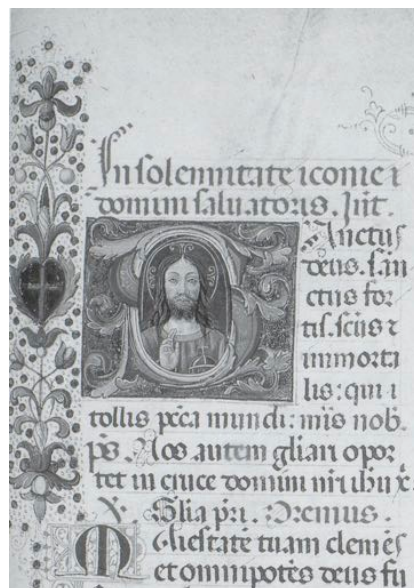 In solennitate iconie i
domini saluatoris. Int.
Sanctus
deus. san
ctus for
tis. sc̄us ⁊
immorta
lis: qui i
tollis pc̄ca mundi: mis nob.
ps. Nos autem gliari opor
tet in cruce domini nr̄i ihu x̄.
℣. Glia pr̄i. Oremus.
Maiestatē tuam clemēs
et omnipotēs deus